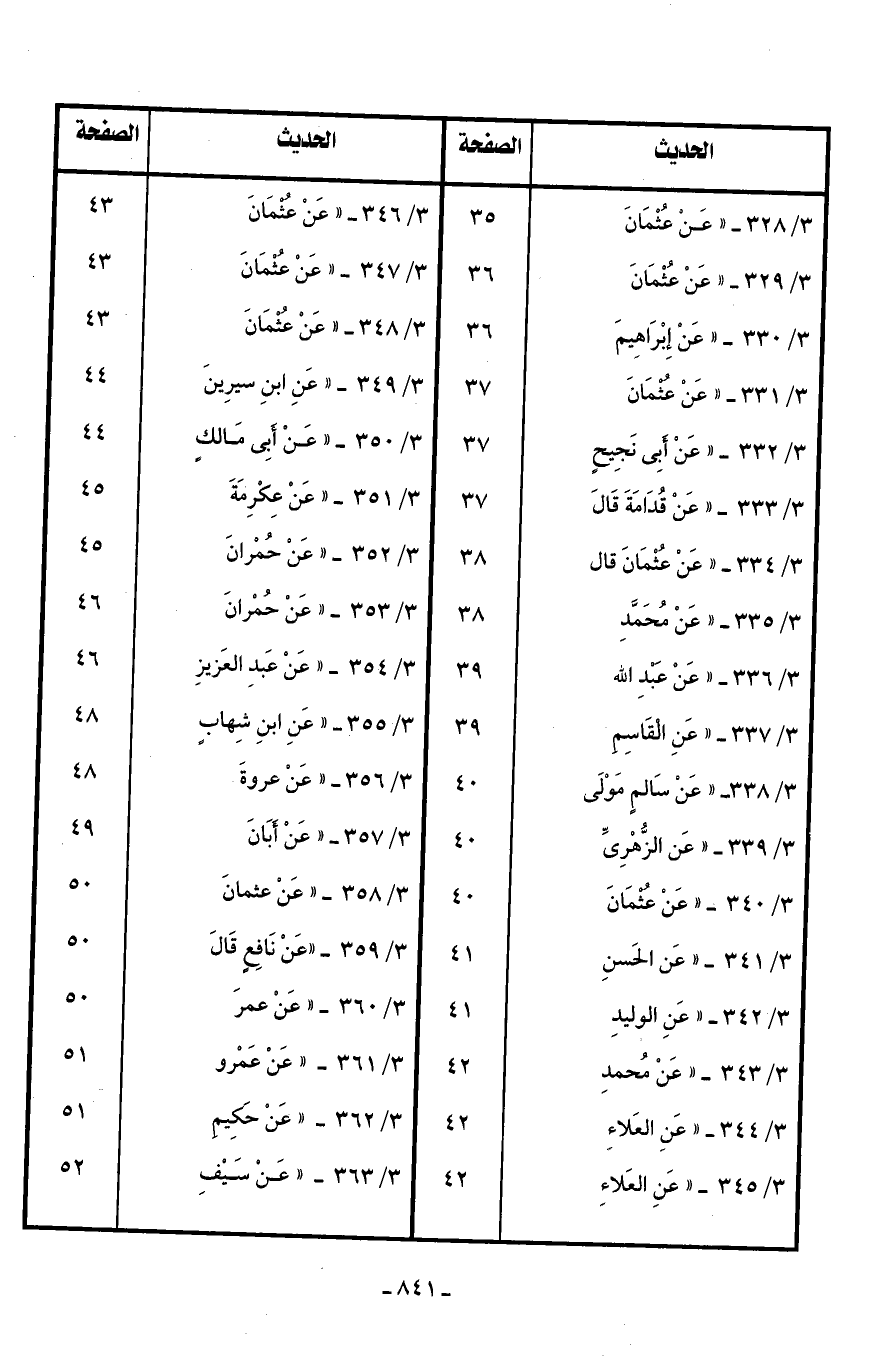 الحديث الصفحة الحديث الصفحة
٣/ ٣٢٨ ـ « عَـنْ عُثْمَانَ ٣٥
٣/ ٣٢٩ ـ « عَنْ عُثْمَانَ ٣٦
٣/ ٣٣٠ ـ « عَنْ إِبْرَاهِيمَ ٣٦
٣/ ٣٣١ ـ « عَنْ عُثْمَانَ ٣٧
٣/ ٣٣٢ ـ « عَنْ أَبِى نَجِيحٍ ٣٧
٣/ ٣٣٣ ـ « عَنْ قُدَامَةَ قَالَ ٣٧
٣/ ٣٣٤ ـ « عَنْ عُثْمَانَ قال ٣٨
٣/ ٣٣٥ ـ « عَنْ مُحَمَّدِ ٣٨
٣/ ٣٣٦ ـ « عَنْ عَبْدِ الله ٣٩
٣/ ٣٣٧ ـ « عَنِ الْقَاسِمِ ٣٩
٣/ ٣٣٨ـ « عَنْ سَالمٍ مَوْلَى ٤٠
٣/ ٣٣٩ ـ « عَن الزُّهْرِىِّ ٤٠
٣/ ٣٤٠ ـ « عَنْ عُثْمَانَ ٤٠
٣/ ٣٤١ ـ « عَن الحَسنِ ٤١
٣/ ٣٤٢ ـ « عَنِ الوليدِ ٤١
٣/ ٣٤٣ ـ « عَنْ مُحمدِ ٤٢
٣/ ٣٤٤ ـ « عَنِ العَلاءِ ٤٢
٣/ ٣٤٥ ـ « عَنِ العَلاءِ ٤٢
٣/ ٣٤٦ ـ « عَنْ عُثْمَانَ ٤٣
٣/ ٣٤٧ ـ « عَنْ عُثْمَانَ ٤٣
٣/ ٣٤٨ ـ « عَنْ عُثْمَانَ ٤٣
٣/ ٣٤٩ ـ « عَنِ ابنِ سيرِينَ ٤٤
٣/ ٣٥٠ ـ « عَـنْ أَبِى مَـالكٍ ٤٤
٣/ ٣٥١ ـ « عَنْ عِكْرِمَةَ ٤٥
٣/ ٣٥٢ ـ « عَنْ حُمْرانَ ٤٥
٣/ ٣٥٣ ـ « عَنْ حُمْرانَ ٤٦
٣/ ٣٥٤ ـ « عَنْ عَبدِ العَزيزِ ٤٦
٣/ ٣٥٥ ـ « عَنِ ابنِ شِهابٍ ٤٨
٣/ ٣٥٦ ـ « عَنْ عروةَ ٤٨
٣/ ٣٥٧ ـ « عَنْ أَبَانَ ٤٩
٣/ ٣٥٨ ـ « عَنْ عثمانَ ٥٠
٣/ ٣٥٩ ـ «عَنْ نَافِعٍ قَالَ ٥٠
٣/ ٣٦٠ ـ « عَنْ عمرَ ٥٠
٣/ ٣٦١ ـ « عَنْ عَمْرو ٥١
٣/ ٣٦٢ ـ « عَنْ حَكِيمِ ٥١
٣/ ٣٦٣ ـ « عَـنْ سَـيْفِ ٥٢
ـ ٨٤١ ـ